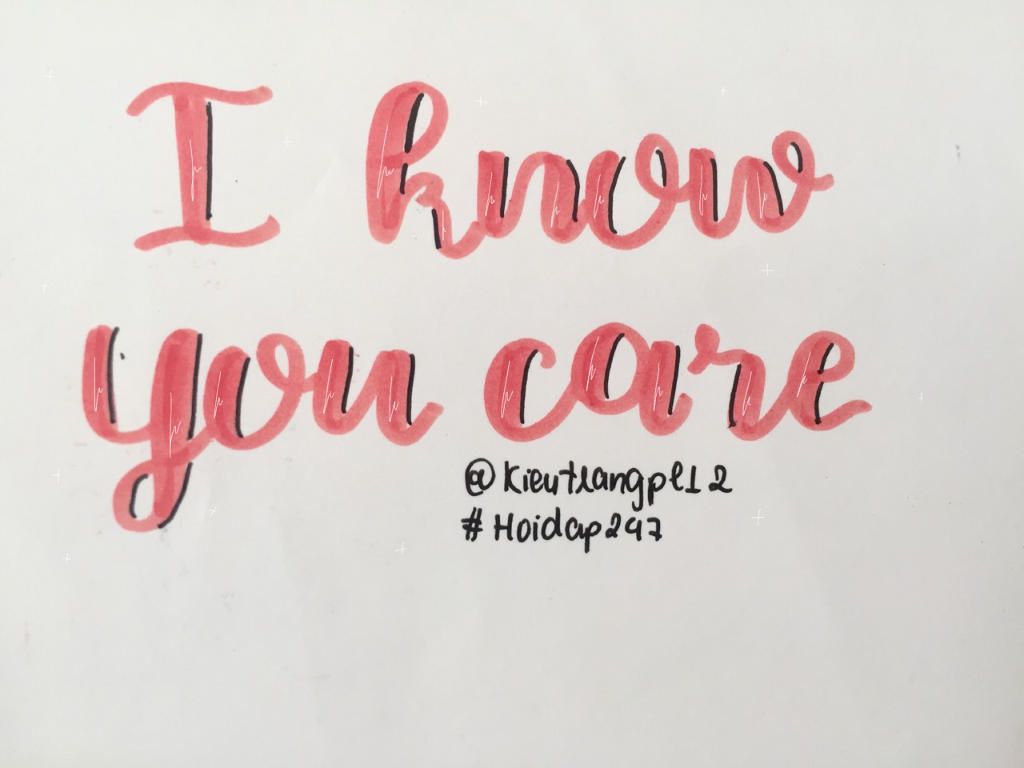 I know
you care
@Kieutrangpl12
#Hoidap247